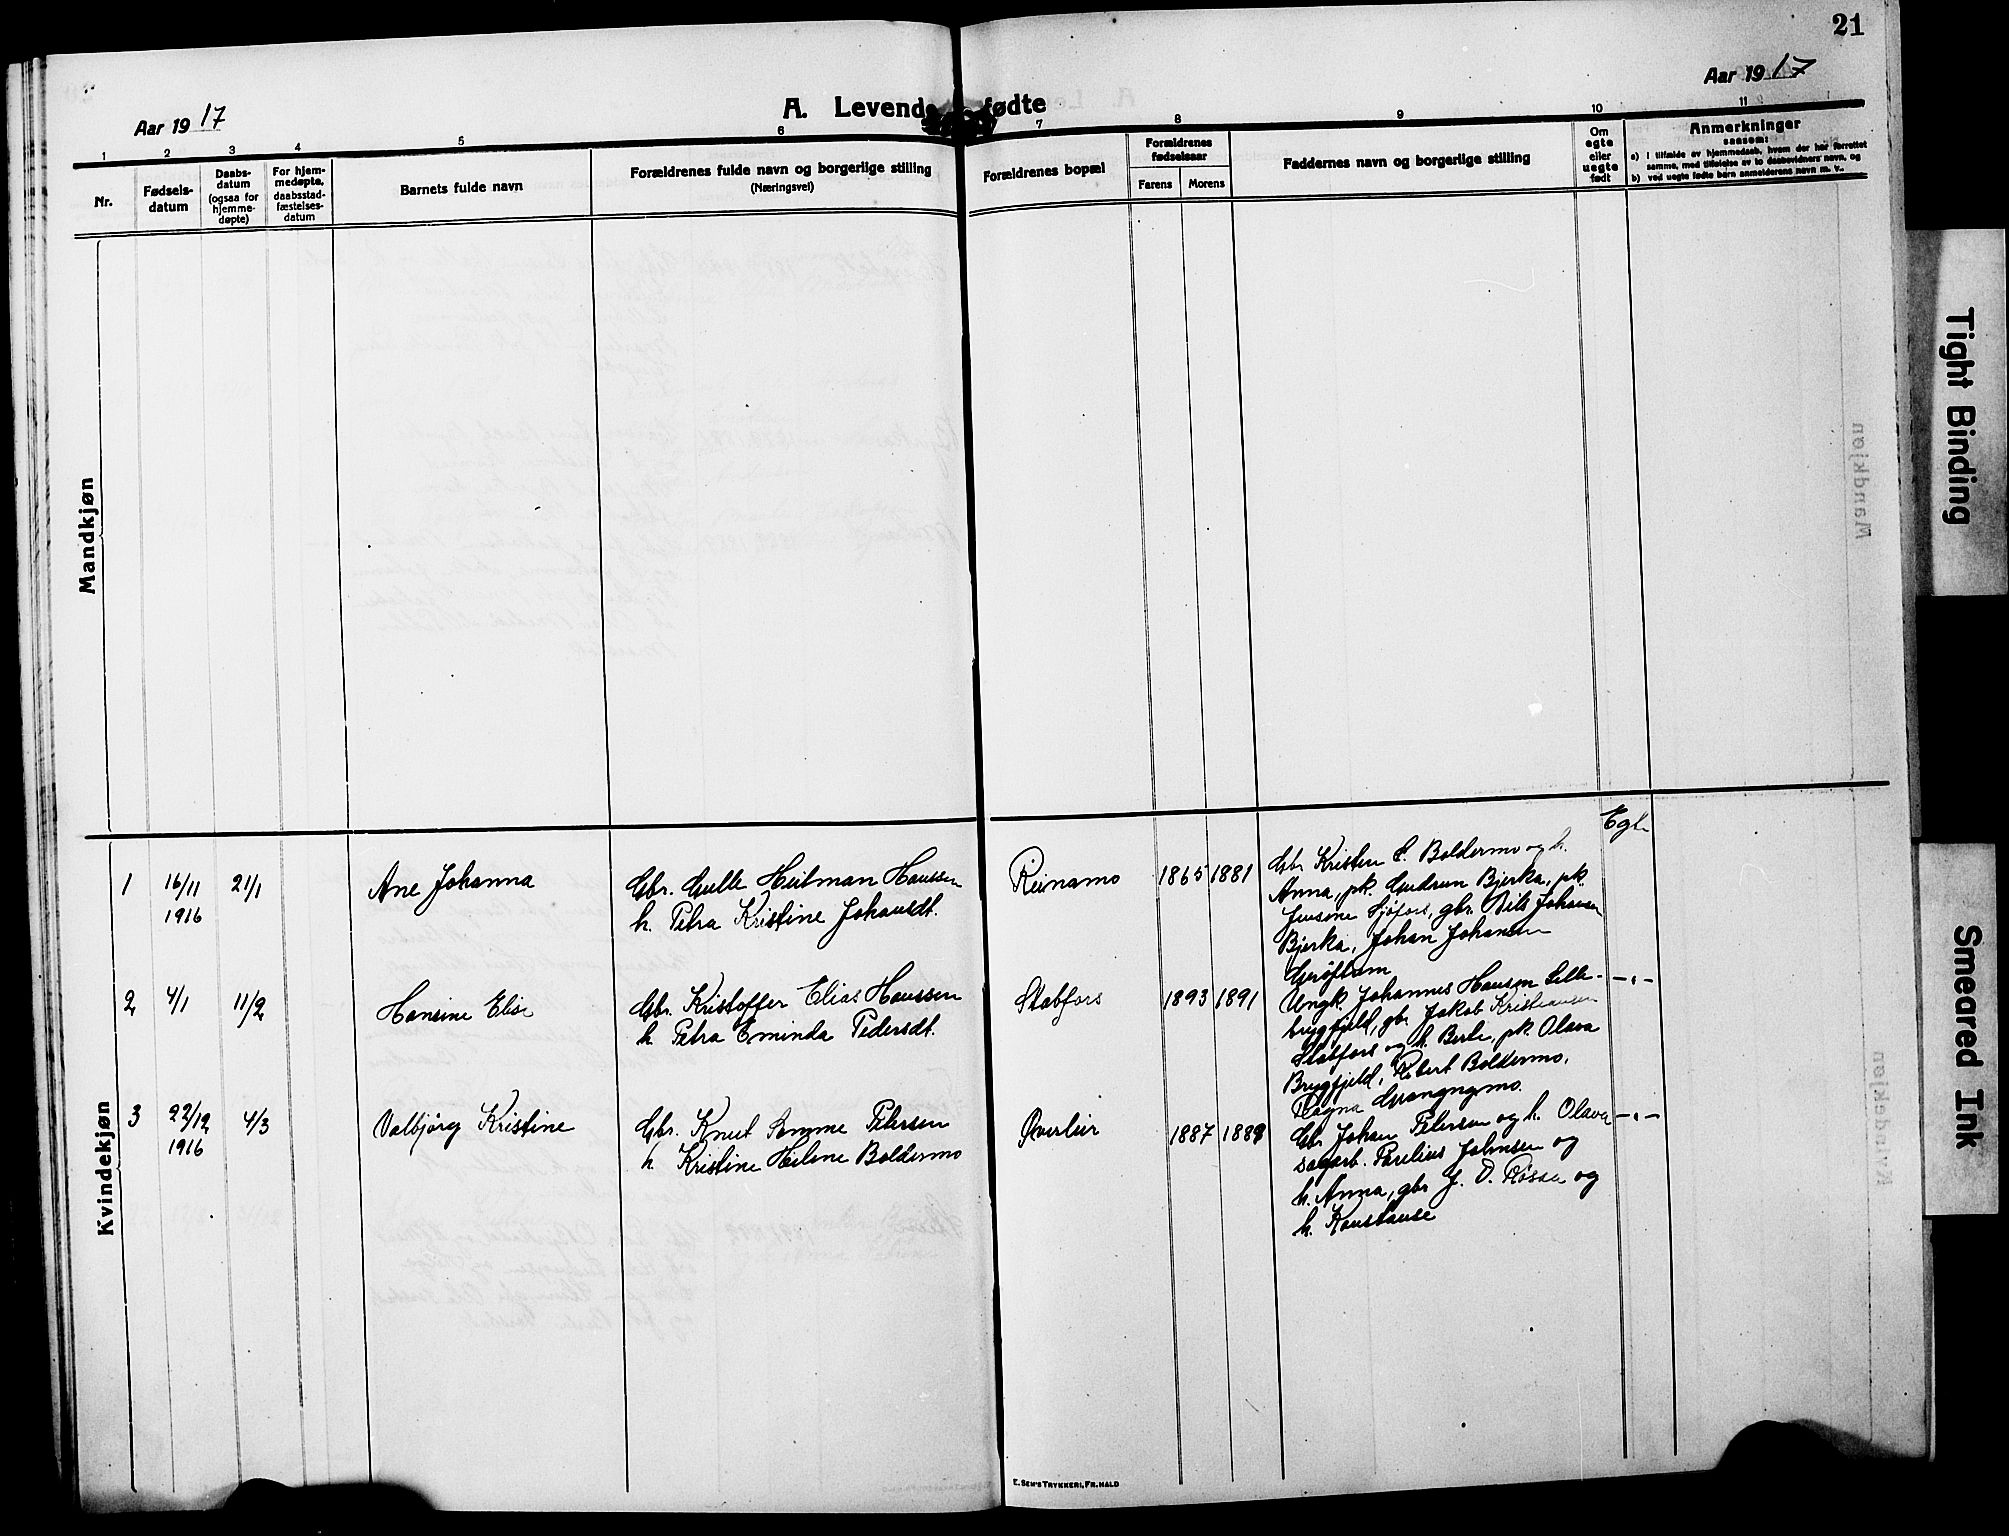 21
Aar 1917
A. Levende fødte
Aar 1917
1 2 3 4 5 6 7 8 9 10 11
Nr.
Fødsels-
datum
Daabs-
datum
(ogsaa for
hjemme-
døpte)
For hjem-
medøpte,
daabsstad-
fæstelses-
datum
Barnets fulde navn
Forældrenes fulde navn og borgerlige stilling
(Næringsvei)
Forældrenes bopæl
Forældrenes
fødselsaar
Farens Morens
Faddernes navn og borgerlige stilling
Om
egte
eller
uegte
født
Anmerkninger
saasom:
a) i tilfælde av hjemmedaab, hvem der har forrettet
samme, med tilføielse av to daabsvidners navn, og
b) ved uegte fødte barn anmelderens navn m. v.
Mandkjøn
Kvindekjøn
1
16/11
1916
21/1
Ane Johanna
Gbr. Hilman Hanssen
h. Petra Kristine Johansdt.
Reinamo
1865 1881
Gbr Kristen E. Boldermo og h.
Anna, pk. Gudrun Bjerka, pk.
Jensine Sjøfors, gbr. Nils Johansen
Bjerka, Johan Johansen
Egte
2
4/1
11/2
Hansine Elise
Gbr. Kristoffer Elias Hanssen
h. Petra Eminda Pedersdt.
Stabfors
1893 1891
Ungk. Johannes Hansen Lille-
brygfjeld, gbr Jakob Kristiansen
Stabfors og h. Berle, pk. Olava
Brygfjeld, Robert Boldermo,
Ragna
-"-
3
22/12
1916
4/3
Valbjørg Kristine
Gbr. Knut Petersen
h. Kristine Helene Boldermo
Øverleir
1887 1889
Gbr Johan Petersen og h. Olava
sagarb. Parelius Johnsen og
h. Anna, gbr J. O. Røssa og
h. Konstanse
-"-
E. Sem's Trykkeri, Fr.hald
Tight Binding
Smeared Ink